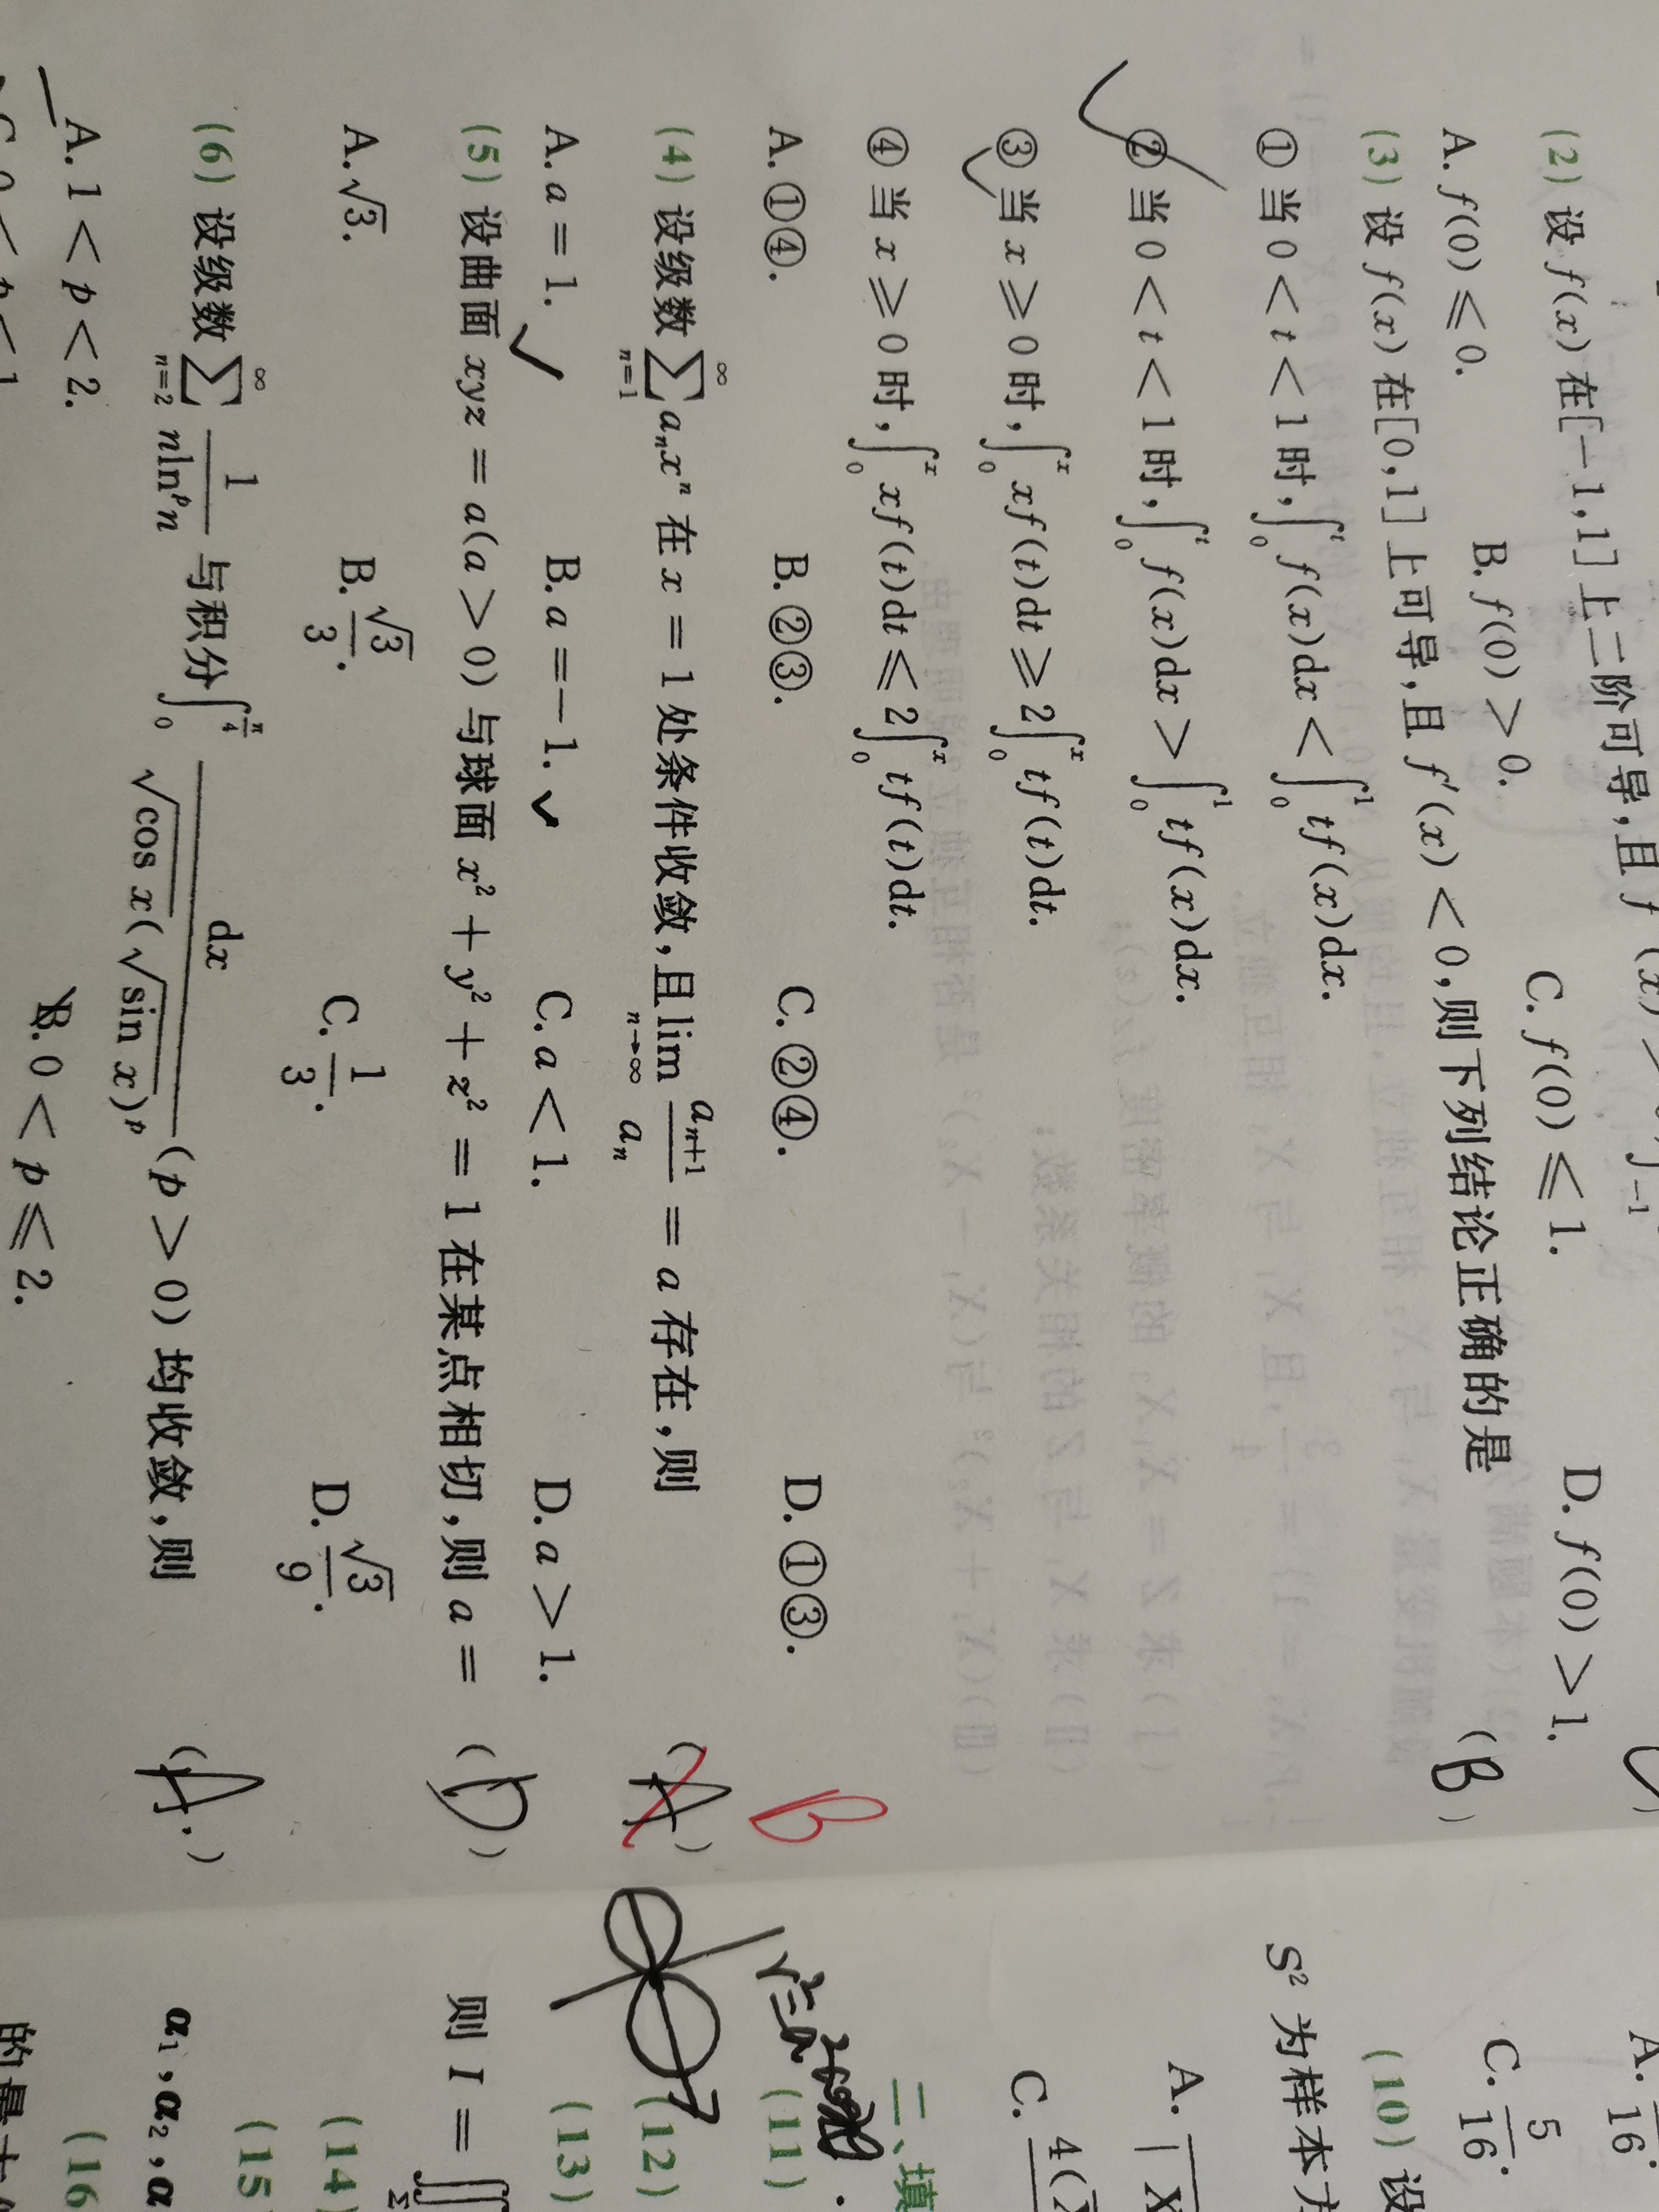 (2) 设 f(x) 在[-1,1]上二阶可导,且 f
A. f(0) ≤ 0. B. f(0) > 0. C. f(0) ≤ 1. D. f(0) > 1.
(3) 设 f(x) 在[0,1]上可导,且 f′(x) < 0,则下列结论正确的是 (B)
① 当 0 < t < 1 时,∫₀ᵗ f(x)dx < ∫₀¹ tf(x)dx.
② 当 0 < t < 1 时,∫₀ᵗ f(x)dx > ∫₀¹ tf(x)dx.
③ 当 x ≥ 0 时,∫₀ˣ xf(t)dt ≥ 2∫₀ˣ tf(t)dt.
④ 当 x ≥ 0 时,∫₀ˣ xf(t)dt ≤ 2∫₀ˣ tf(t)dt.
A. ①④. B. ②③. C. ②④. D. ①③.
B
(4) 设级数 ∑_{n=1}^{∞} aₙxⁿ 在 x = 1 处条件收敛,且 lim_{n→∞} aₙ₊₁/aₙ = a 存在,则 (A)
A. a = 1. B. a = −1. C. a < 1. D. a > 1.
(5) 设曲面 xyz = a(a > 0) 与球面 x² + y² + z² = 1 在某点相切,则 a = (D)
A. √3. B. √3/3. C. 1/3. D. √3/9.
(6) 设级数 ∑_{n=2}^{∞} 1/(nlnᵖn) 与积分 ∫₀^{π/4} dx/(√cos x(√sin x)ᵖ) (p > 0) 均收敛,则 (A.)
A. 1 < p < 2. B. 0 < p ≤ 2.
A. 16.
C. 5/16.
(10) 设
S² 为样本方
A.
C.
二、填
r²=a²
(11)
(12)
(13)
则 I = ∬
(14)
(15)
α₁,α₂,α
(16